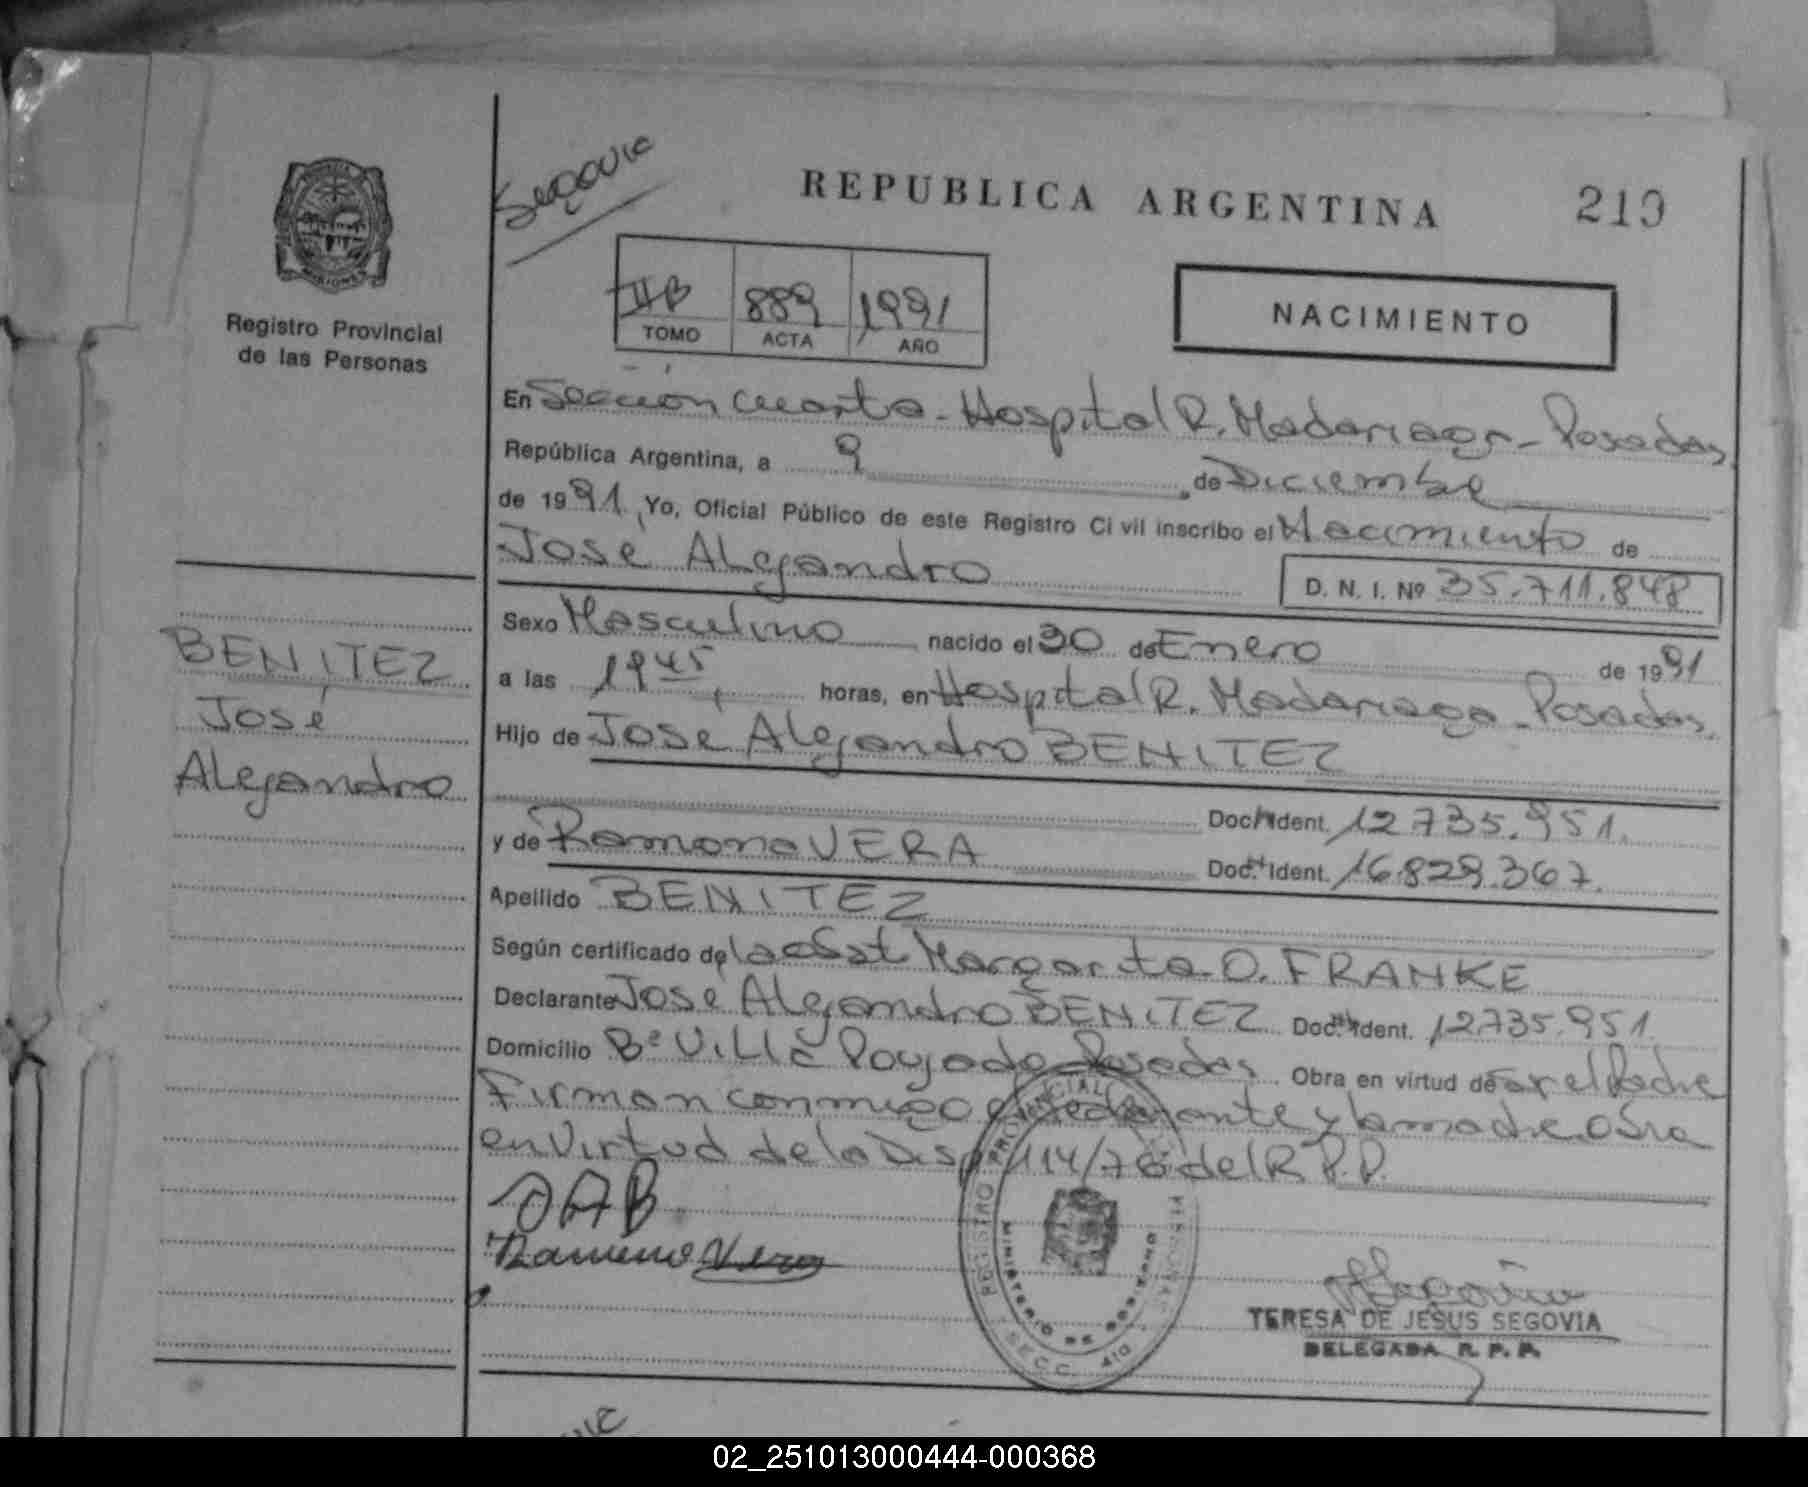 Segovia
REPUBLICA ARGENTINA
219
Registro Provincial
de las Personas
IIB 889 1991
TOMO ACTA AÑO
NACIMIENTO
En Sección Cuarta - Hospital R. Madariaga - Posadas
República Argentina, a 9 de Diciembre
de 1991, Yo, Oficial Público de este Registro Civil inscribo el Nacimiento de
José Alejandro
D. N. I. Nº 35.711.848
Sexo Masculino nacido el 30 de Enero de 1991
a las 19 45 horas, en Hospital R. Madariaga - Posadas.
Hijo de José Alejandro BENITEZ
Doc. Ident. 12735.951.
y de Ramona VERA Doc. Ident. 16.829.367.
Apellido BENITEZ
Según certificado de la obst. Margarita O. FRANKE
Declarante José Alejandro BENITEZ Doc. Ident. 12735.951.
Domicilio Bº Villa Poujade Posadas Obra en virtud de ser el Padre
Firman conmigo el declarante y la madre obra
en virtud de la Disp. 114/76 del R.P.P.
BENITEZ
José
Alejandro
JAB
Ramona Vera
REGISTRO PROVINCIAL PERSONAS
MINISTERIO DE GOBIERNO
SECC. 4ta
Segovia
TERESA DE JESUS SEGOVIA
DELEGADA R. P. P.
02_251013000444-000368